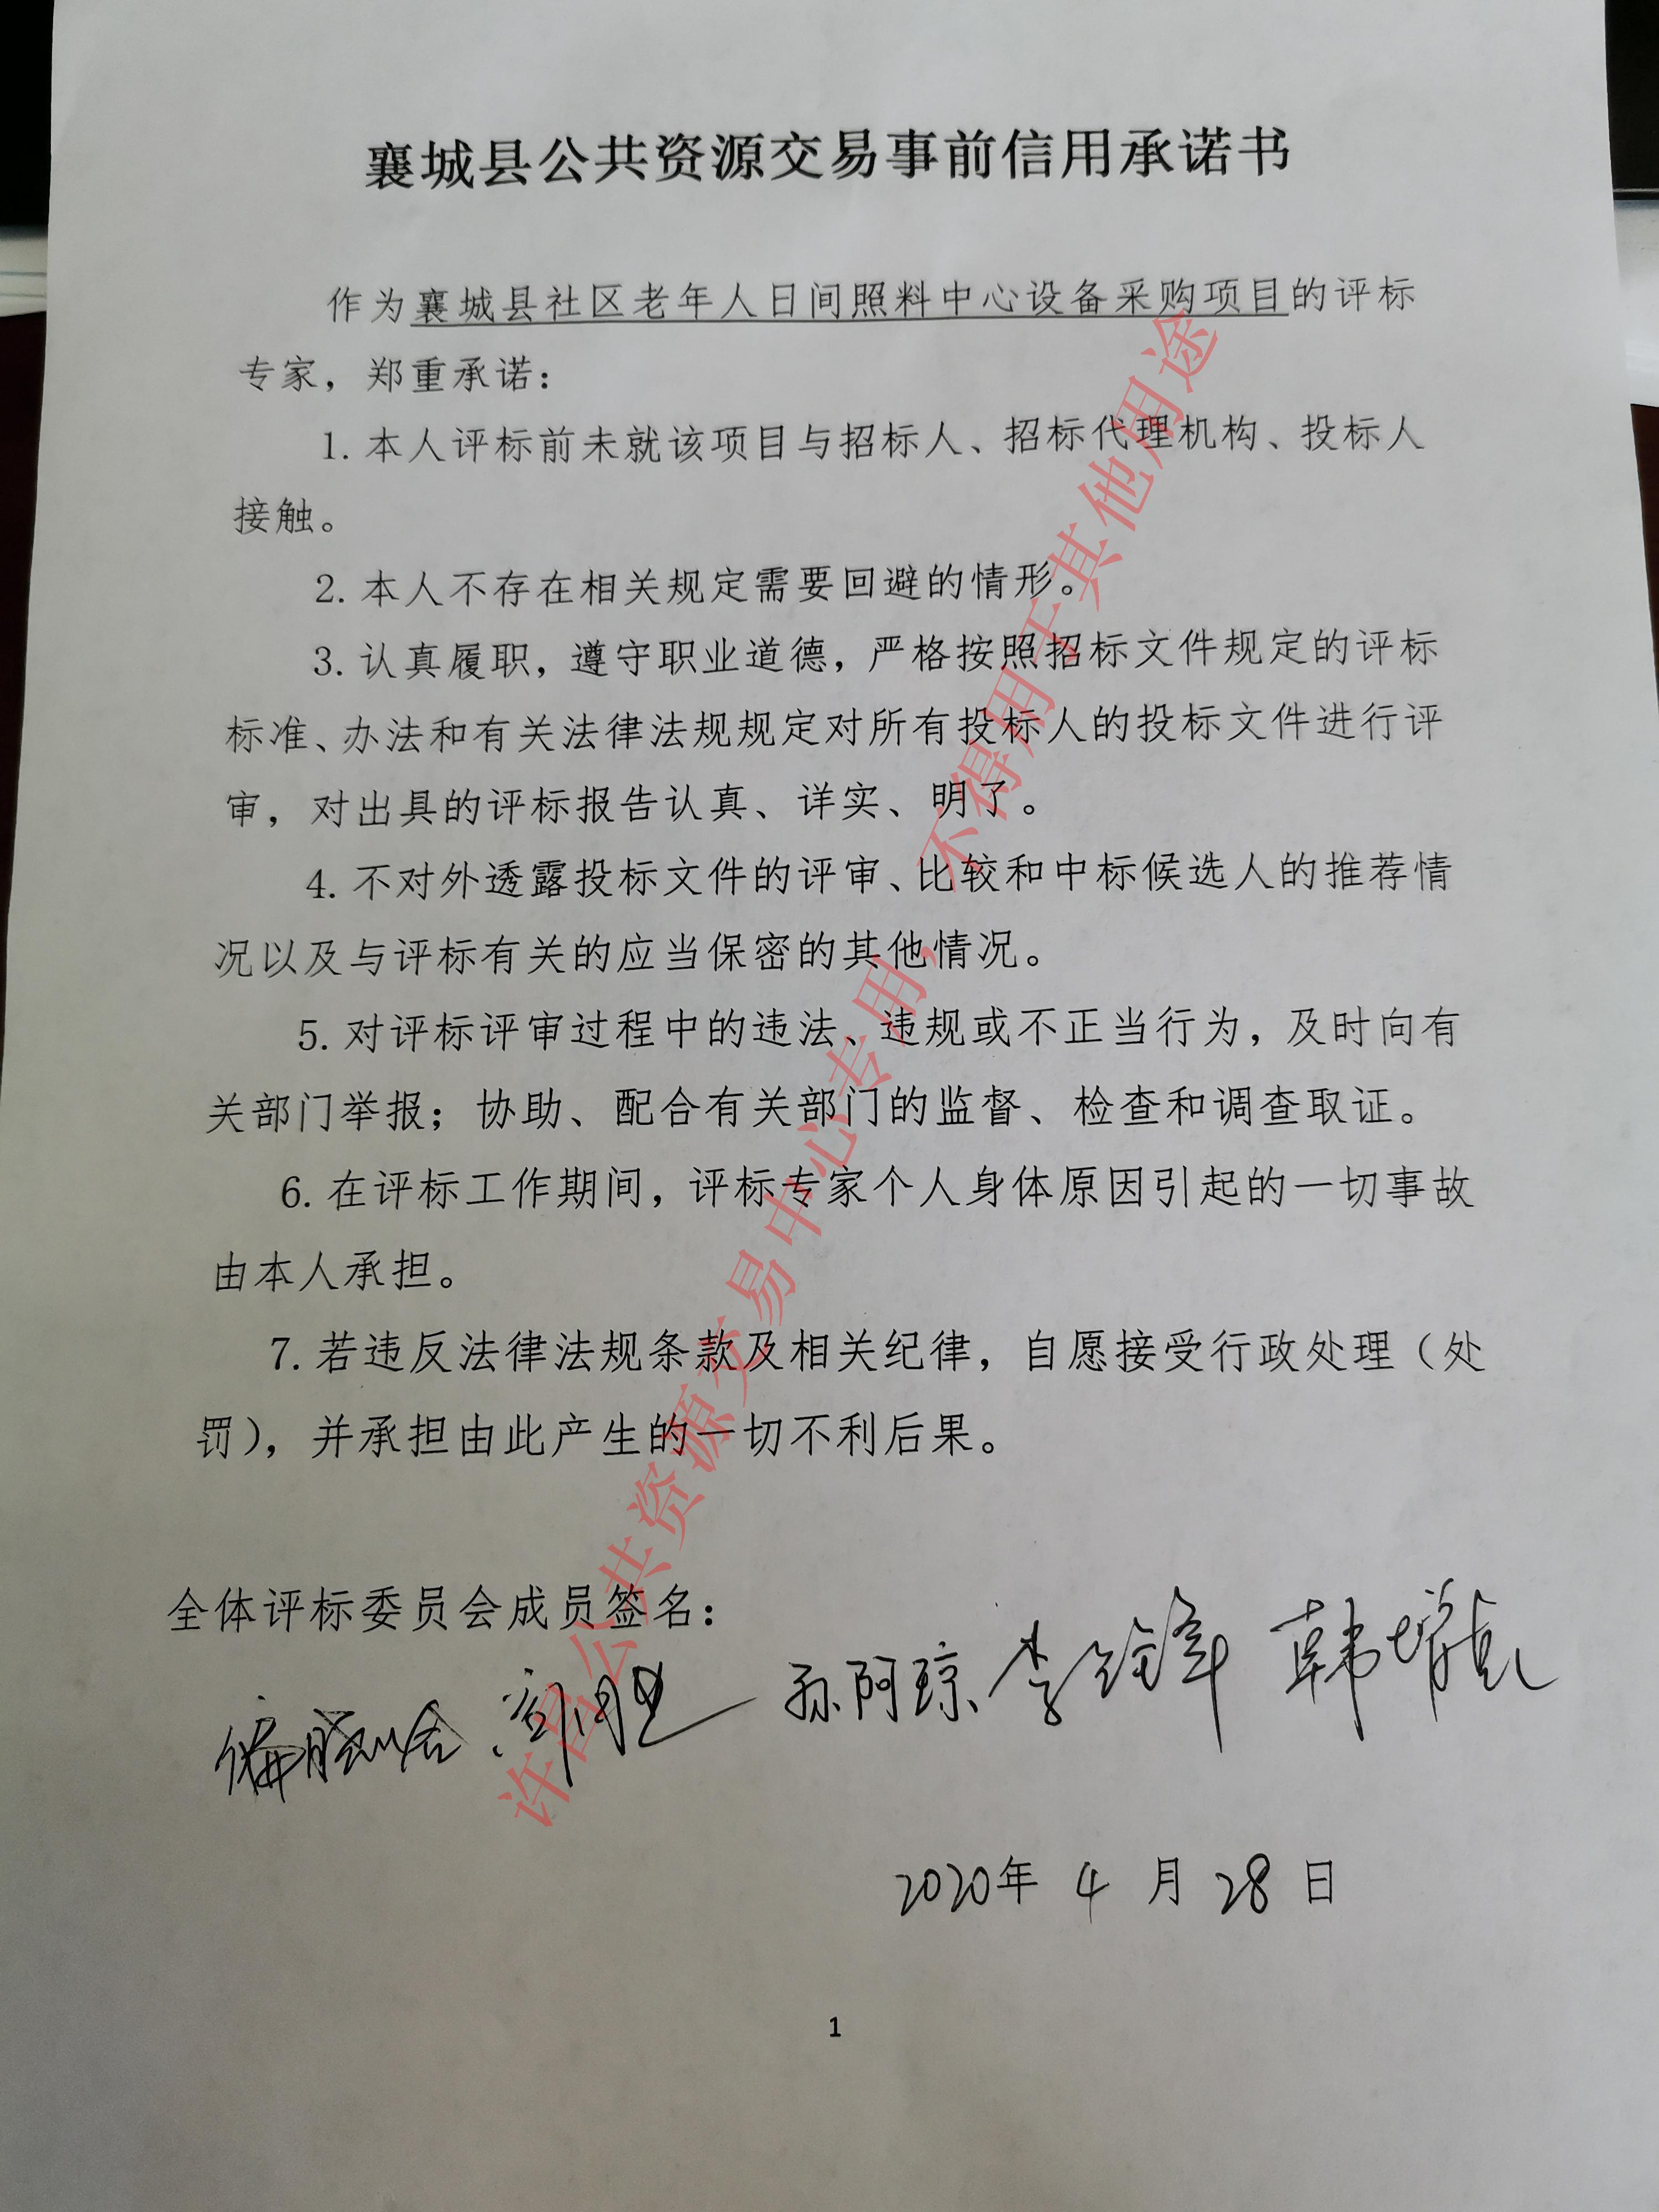 襄城县公共资源交易事前信用承诺书
作为襄城县社区老年人日间照料中心设备采购项目的评标
专家，郑重承诺：
1.本人评标前未就该项目与招标人、招标代理机构、投标人
接触。
2.本人不存在相关规定需要回避的情形。
3.认真履职，遵守职业道德，严格按照招标文件规定的评标
标准、办法和有关法律法规规定对所有投标人的投标文件进行评
审，对出具的评标报告认真、详实、明了。
4.不对外透露投标文件的评审、比较和中标候选人的推荐情
况以及与评标有关的应当保密的其他情况。
5.对评标评审过程中的违法、违规或不正当行为，及时向有
关部门举报；协助、配合有关部门的监督、检查和调查取证。
6.在评标工作期间，评标专家个人身体原因引起的一切事故
由本人承担。
7.若违反法律法规条款及相关纪律，自愿接受行政处理（处
罚），并承担由此产生的一切不利后果。
全体评标委员会成员签名：
孙阿琼 李 韩
2020年 4 月 28 日
1
许昌公共资源交易中心专用，不得用于其他用途